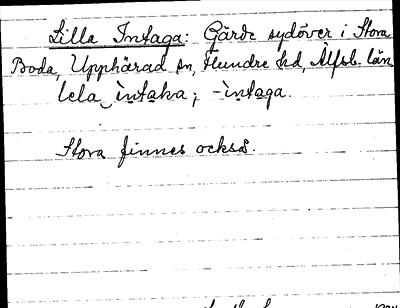 Lilla Intaga: Gärde sydöver i Stora
Boda, Upphärad sn, Flundre hd, Älfsb. län
lela ìntaka; -ìntaga.
Stora finnes också.